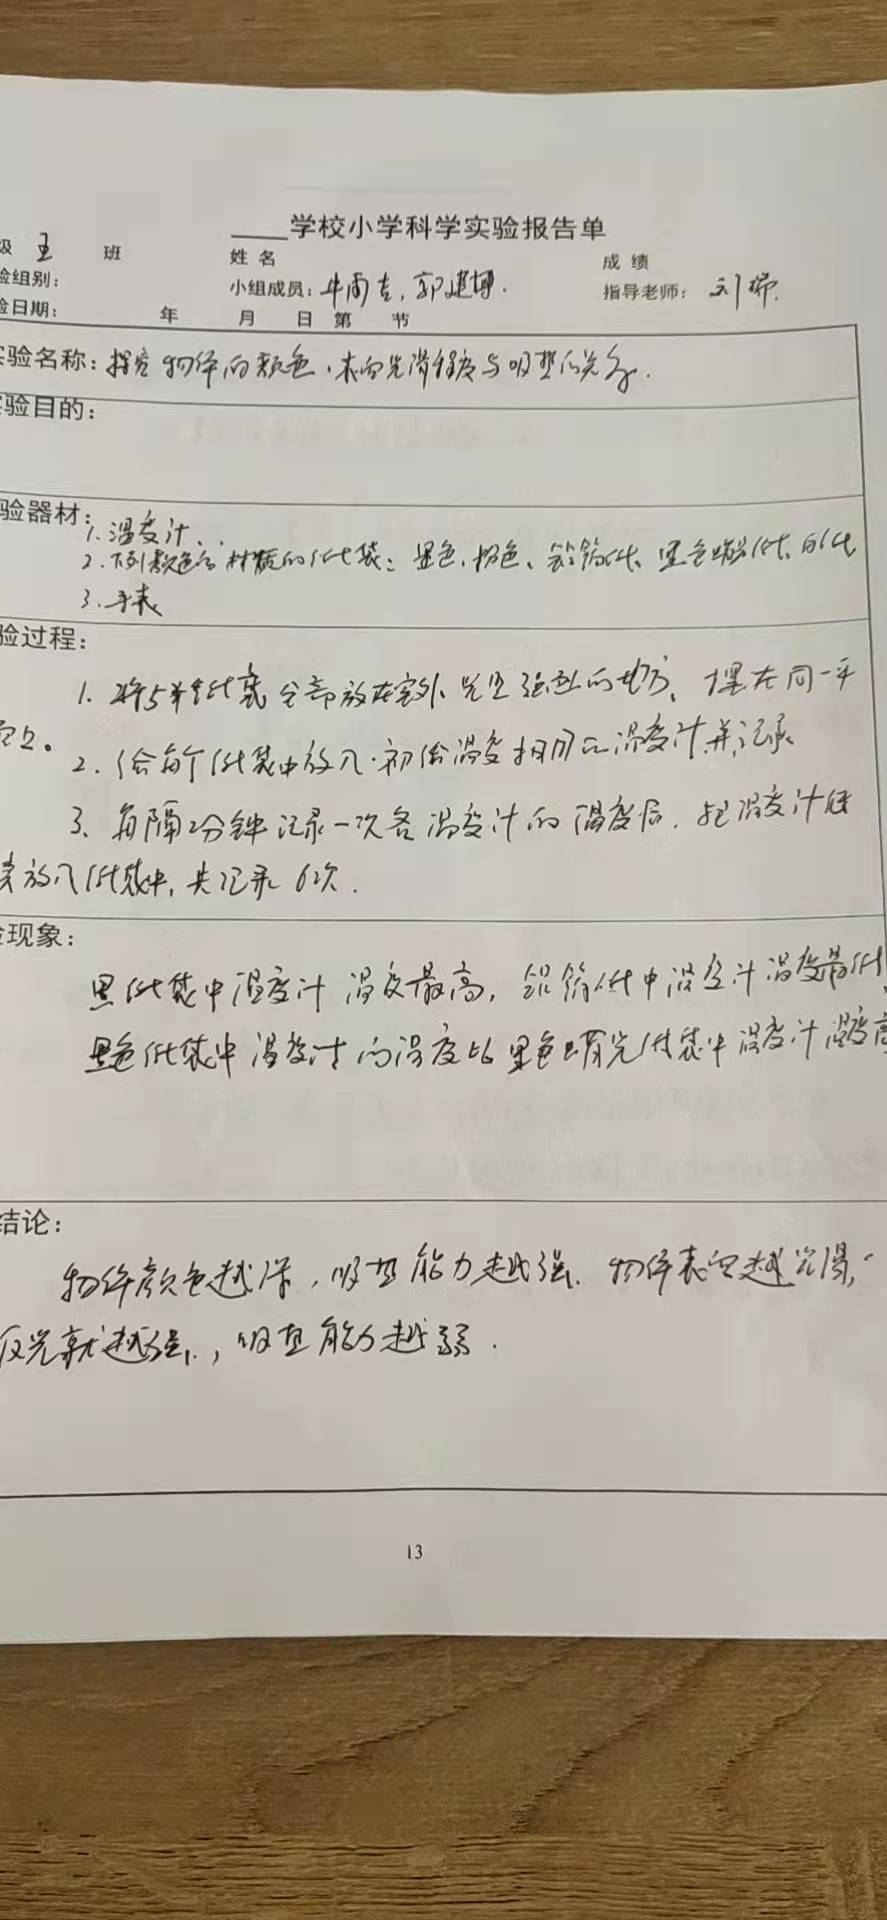 学校小学科学实验报告单
级 五 班 姓名 成绩
验组别: 小组成员: 牛雨吉, 郭建博. 指导老师: 刘
验日期: 年 月 日 第 节
实验名称: 探究物体的颜色、表面光滑程度与吸热的关系.
实验目的:
验器材:
1. 温度计
2. 下列颜色与材质的纸袋: 黑色、粉色、铝箔纸、黑色蜡光纸、白纸
3. 手表
验过程:
1. 将5个纸袋全部放在室外光照强烈的地方、摆在同一平
面上。
2. 给每个纸袋中放入初始温度相同的温度计并记录
3. 每隔2分钟记录一次各温度计的温度后, 把温度计继
续放入纸袋中, 共记录6次.
验现象:
黑纸袋中温度计温度最高, 铝箔纸中温度计温度最低
黑色纸袋中温度计的温度比黑色蜡光纸袋中温度计温度高
结论:
物体颜色越深, 吸热能力越强. 物体表面越光滑,
反光就越强, 吸热能力越弱.
13